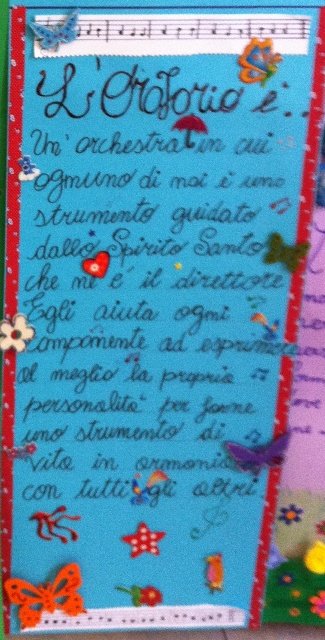 L'Oratorio è...
Un'orchestra in cui
ognuno di noi è uno
strumento guidato
dallo Spirito Santo
che ne è il direttore
Egli aiuta ogni
componente ad esprimere
al meglio la propria
personalità per farne
uno strumento di
vita in armonia
con tutti gli altri.